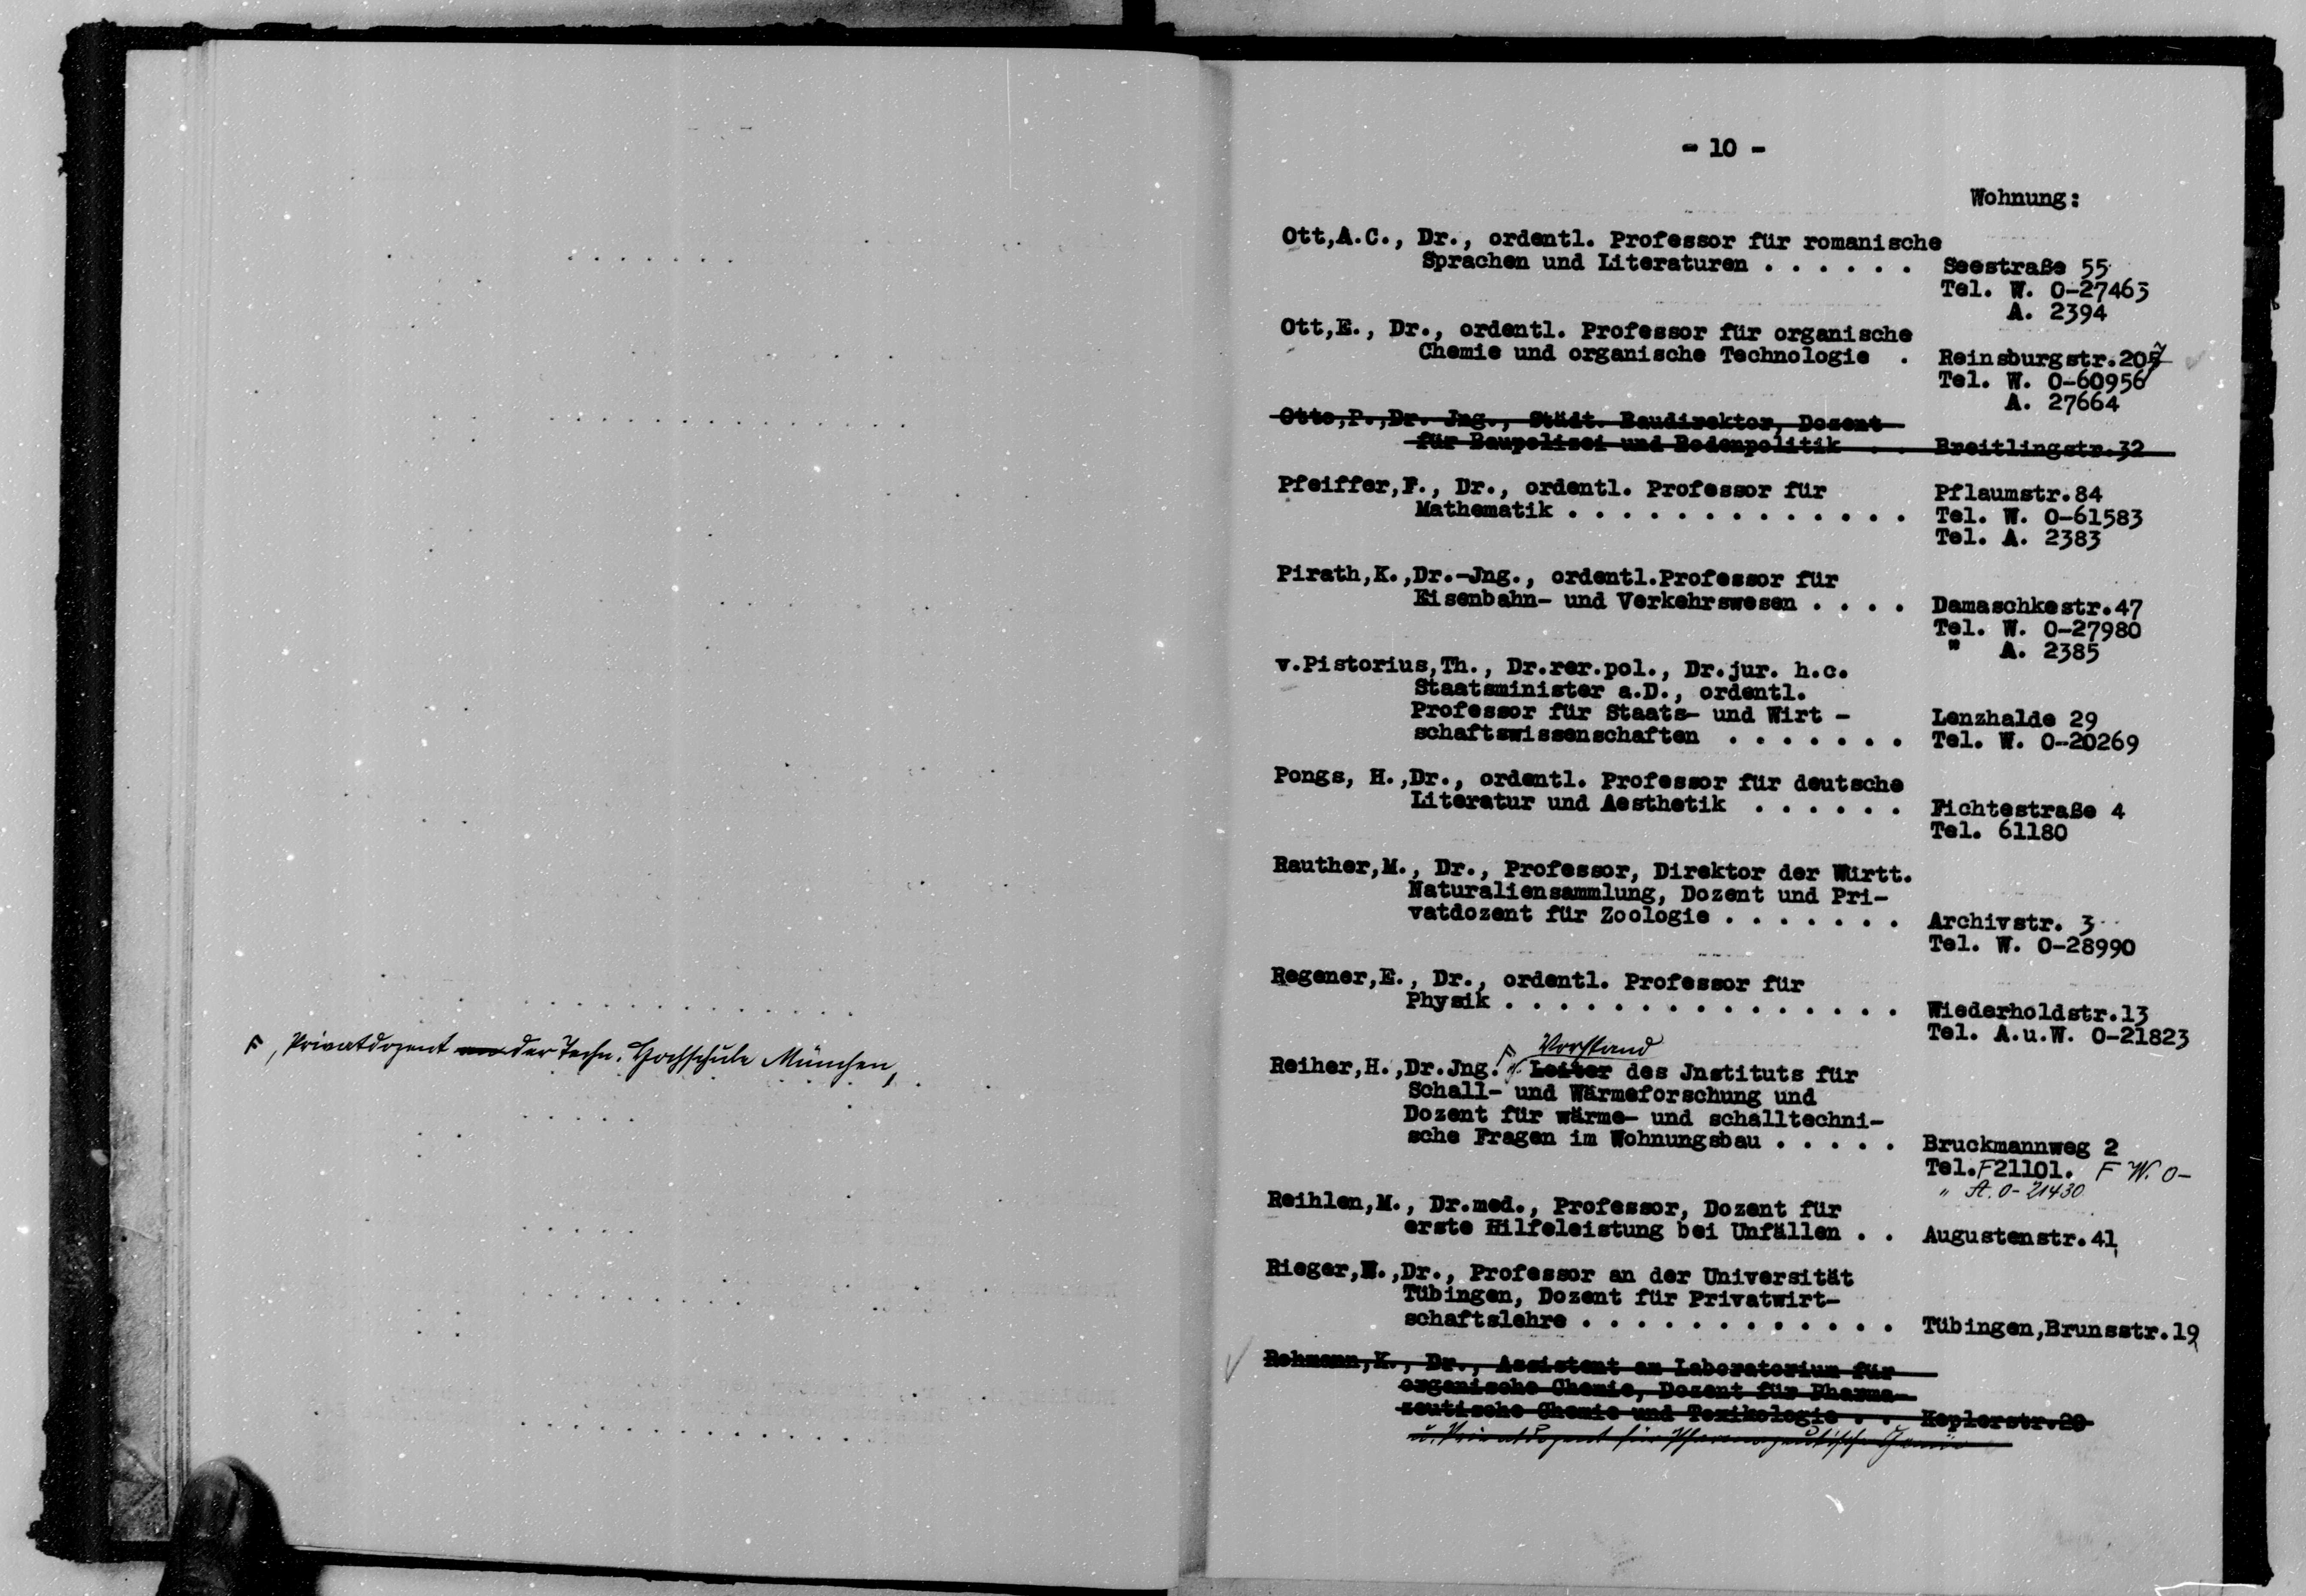 F, Privatdozent an der Techn. Hochschule München,
- 10 -
Wohnung:
Ott,A.C., Dr., ordentl. Professor für romanische
Sprachen und Literaturen . . . . . . Seestraße 55
Tel. W. 0-27463
A. 2394
Ott,E., Dr., ordentl. Professor für organische
Chemie und organische Technologie . Reinsburgstr.205 7
Tel. W. 0-60956
A. 27664
Otto,P.,Dr. Jng., Städt. Baudirektor, Dozent
für Baupolizei und Bodenpolitik . . Breitlingstr.32
Pfeiffer,F., Dr., ordentl. Professor für Pflaumstr.84
Mathematik . . . . . . . . . . . . . Tel. W. 0-61583
Tel. A. 2383
Pirath,K.,Dr.-Jng., ordentl.Professor für
Eisenbahn- und Verkehrswesen . . . . Damaschkestr.47
Tel. W. 0-27980
" A. 2385
v.Pistorius,Th., Dr.rer.pol., Dr.jur. h.c.
Staatsminister a.D., ordentl.
Professor für Staats- und Wirt - Lenzhalde 29
schaftswissenschaften . . . . . . . Tel. W. 0-20269
Pongs, H.,Dr., ordentl. Professor für deutsche
Literatur und Aesthetik . . . . . . Fichtestraße 4
Tel. 61180
Rauther,M., Dr., Professor, Direktor der Württ.
Naturaliensammlung, Dozent und Pri-
vatdozent für Zoologie . . . . . . . Archivstr. 3
Tel. W. 0-28990
Regener,E., Dr., ordentl. Professor für
Physik . . . . . . . . . . . . . . . Wiederholdstr.13
Tel. A.u.W. 0-21823
Vorstand
Reiher,H.,Dr.Jng. F Leiter des Jnstituts für
Schall- und Wärmeforschung und
Dozent für wärme- und schalltechni-
sche Fragen im Wohnungsbau . . . . . Bruckmannweg 2
Tel.F21101. F W. 0-
" A. 0-21430
Reihlen,M., Dr.med., Professor, Dozent für
erste Hilfeleistung bei Unfällen . . Augustenstr.41
Rieger,W.,Dr., Professor an der Universität
Tübingen, Dozent für Privatwirt-
schaftslehre . . . . . . . . . . . . Tübingen,Brunsstr.19
Rohmann,K., Dr., Assistent am Laboratorium für
organische Chemie, Dozent für Pharma-
zeutische Chemie und Toxikologie . . Keplerstr.20
u. Privatdozent für Pharmazeutische Chemie